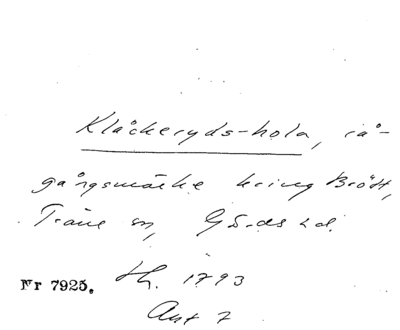 Klåckeryds-hola, rå-
gångsmärke kring Brött,
Träne sn, Gärds hd.
Nr 7925. Hh. 1793
Akt 7